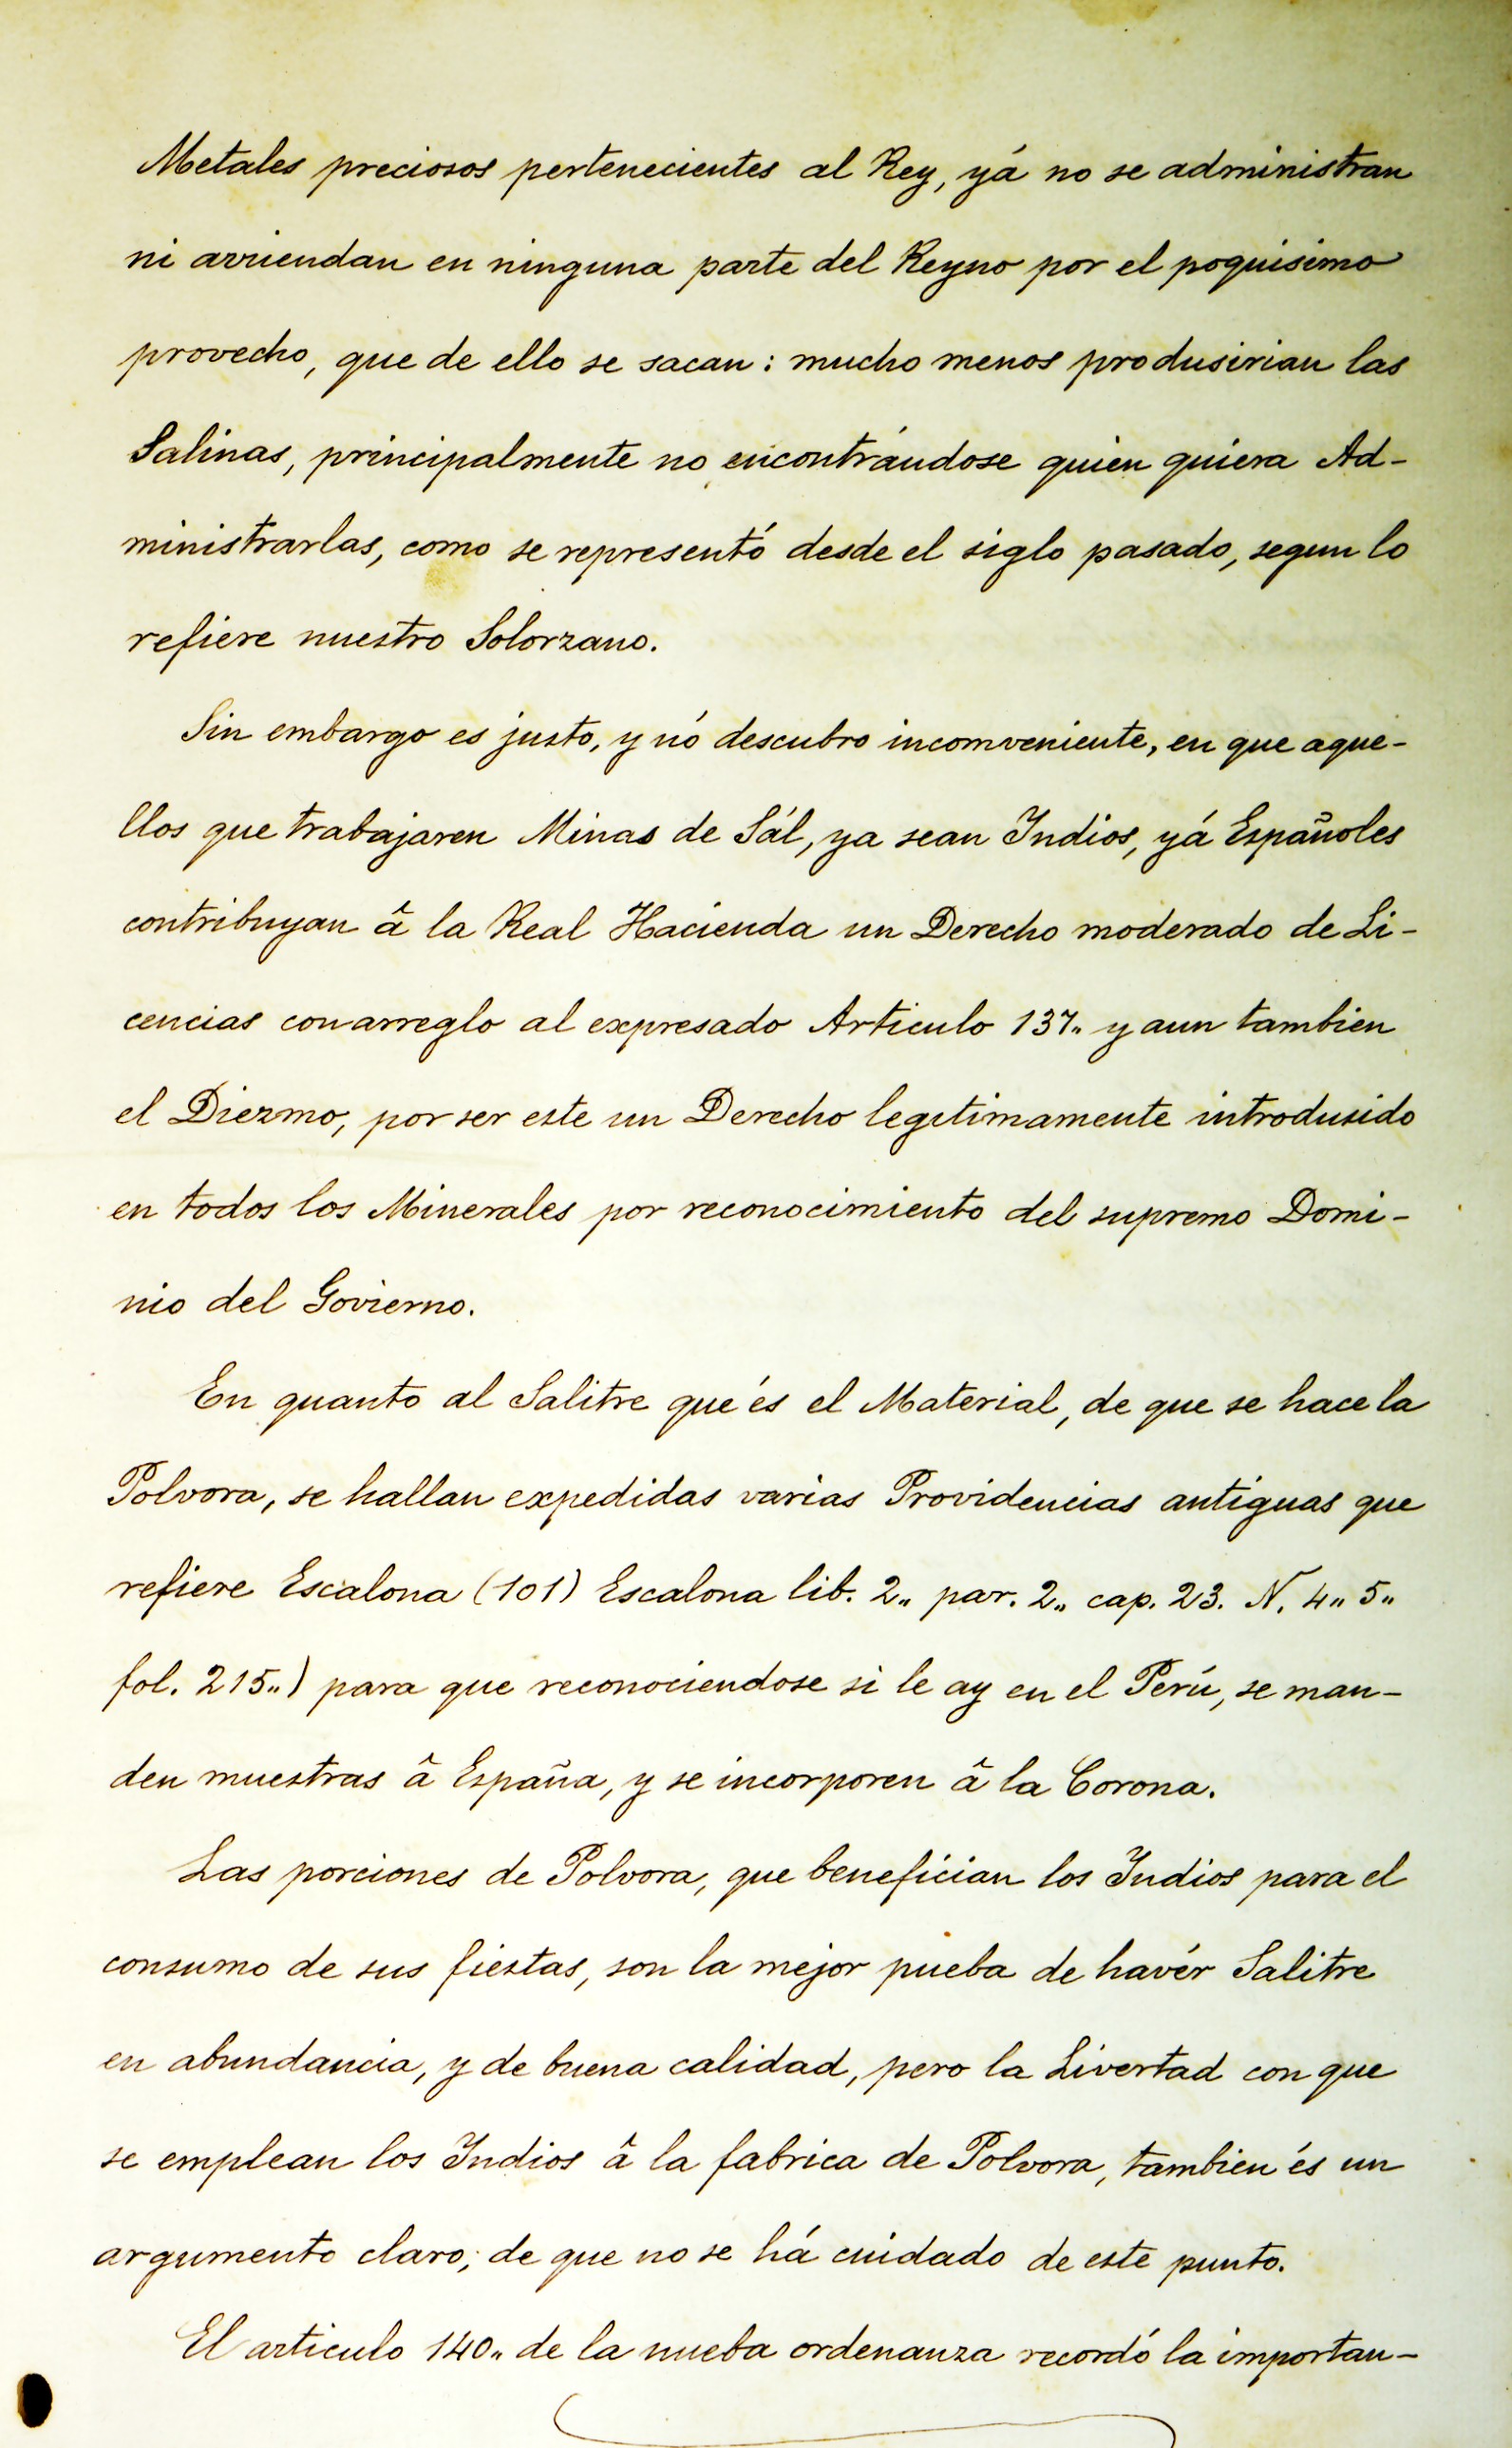 Metales preciosos pertenecientes al Rey, yá no se administran
ni arriendan en ninguna parte del Reyno por el poquisimo
provecho, que de ello se sacan: mucho menos produsirian las
Salinas, principalmente no encontrándose quien quiera Ad-
ministrarlas, como se representó desde el siglo pasado, segun lo
refiere nuestro Solorzano.
Sin embargo es justo, y nó descubro incomveniente, en que aque-
llos que trabajaren Minas de Sál, ya sean Indios, yá Españoles
contribuyan â la Real Hacienda un Derecho moderado de Li-
cencias con arreglo al expresado Articulo 137,, y aun tambien
el Diezmo, por ser este un Derecho legitimamente introdusido
en todos los Minerales por reconocimiento del supremo Domi-
nio del Govierno.
En quanto al Salitre que és el Material, de que se hace la
Polvora, se hallan expedidas varias Providencias antiguas que
refiere Escalona (101) Escalona lib. 2,, par. 2,, cap. 23. N. 4,, 5,,
fol. 215,,) para que reconociendose si le ay en el Perú, se man-
den muestras â España, y se incorporen â la Corona.
Las porciones de Polvora, que benefician los Indios para el
consumo de sus fiestas, son la mejor pueba de havér Salitre
en abundancia, y de buena calidad, pero la Livertad con que
se emplean los Indios â la fabrica de Polvora, tambien és un
argumento claro; de que no se há cuidado de este punto.
El articulo 140,, de la nueba ordenanza recordó la importan-